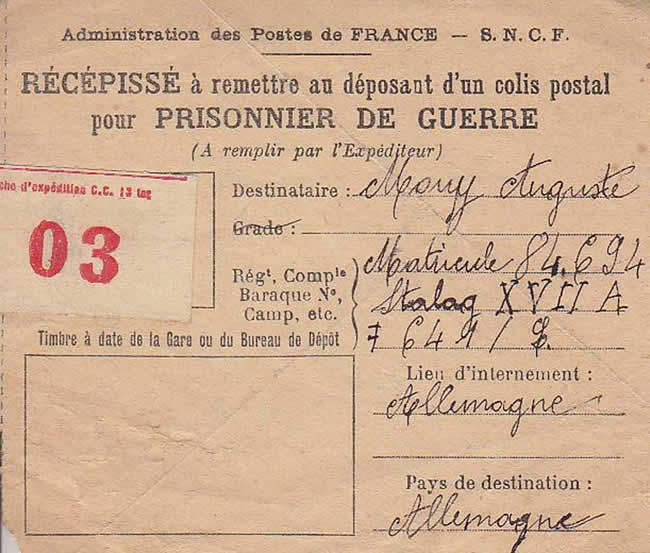 Administration des Postes de FRANCE — S. N. C. F.
RÉCÉPISSÉ à remettre au déposant d'un colis postal
pour PRISONNIER DE GUERRE
(A remplir par l'Expéditeur)
che d'expédition C.C. 13 tog
03
Destinataire : Mouy Auguste
Grade :
Régt, Compie Matricule 84.694
Baraque No, Stalag XVII A
Camp, etc. 7 649 / Z.
Timbre à date de la Gare ou du Bureau de Dépôt
Lieu d'internement :
Allemagne
Pays de destination :
Allemagne